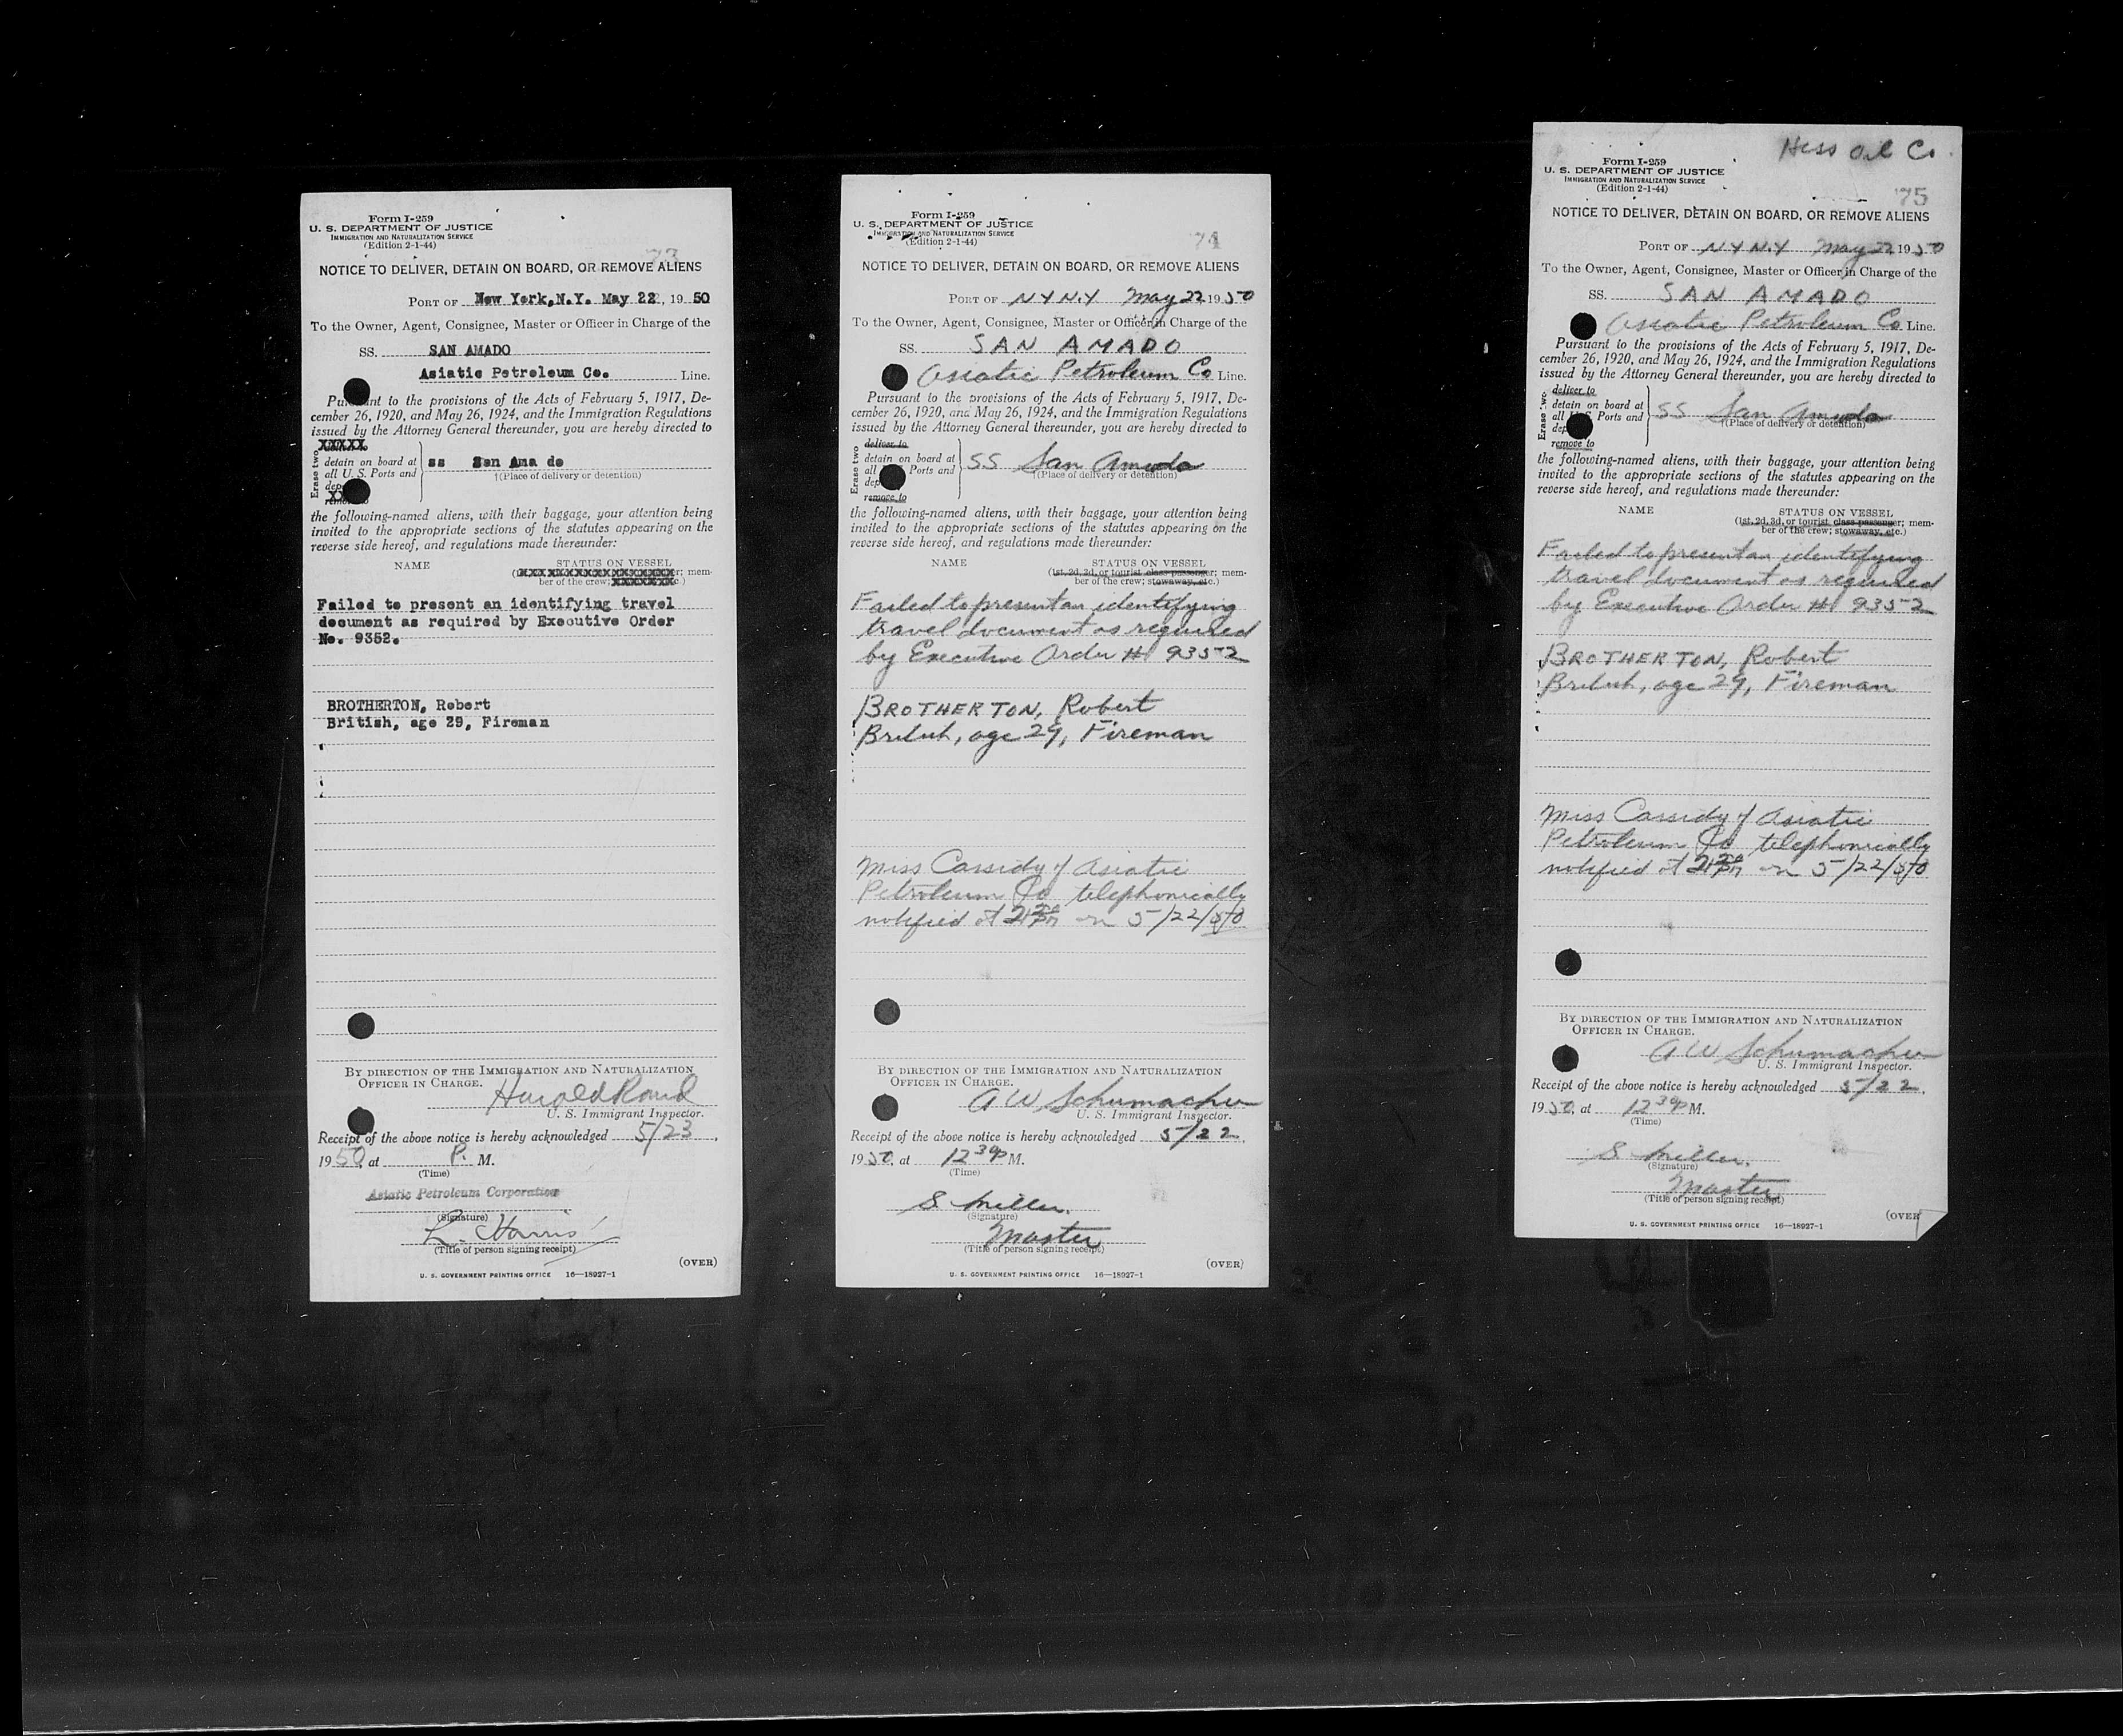 Form I-259
U. S. DEPARTMENT OF JUSTICE
IMMIGRATION AND NATURALIZATION SERVICE
(Edition 2-1-44)
73
NOTICE TO DELIVER, DETAIN ON BOARD, OR REMOVE ALIENS
PORT OF New York, N.Y. May 22, 1950
To the Owner, Agent, Consignee, Master or Officer in Charge of the
SS. SAN AMADO
Asiatic Petroleum Co. Line.
Pursuant to the provisions of the Acts of February 5, 1917, De-
cember 26, 1920, and May 26, 1924, and the Immigration Regulations
issued by the Attorney General thereunder, you are hereby directed to
Erase two
XXXXX
detain on board at
all U. S. Ports and
ss San Ama do
†(Place of delivery or detention)
remove to
the following-named aliens, with their baggage, your attention being
invited to the appropriate sections of the statutes appearing on the
reverse side hereof, and regulations made thereunder:
NAME STATUS ON VESSEL
(XXXXXXXXXXXXXXXXXXXXr; mem-
ber of the crew; XXXXXXXc.)
Failed to present an identifying travel
document as required by Executive Order
No. 9352.
BROTHERTON, Robert
British, age 29, Fireman
BY DIRECTION OF THE IMMIGRATION AND NATURALIZATION
OFFICER IN CHARGE.
Harold
U. S. Immigrant Inspector.
Receipt of the above notice is hereby acknowledged 5/23,
1950, at P. M.
(Time)
Asiatic Petroleum Corporation
(Signature)
L. Harris
(Title of person signing receipt)
(OVER)
U. S. GOVERNMENT PRINTING OFFICE 16—18927-1
Form I-259
U. S. DEPARTMENT OF JUSTICE
IMMIGRATION AND NATURALIZATION SERVICE
(Edition 2-1-44)
74
NOTICE TO DELIVER, DETAIN ON BOARD, OR REMOVE ALIENS
PORT OF N Y N.Y May 22 1950
To the Owner, Agent, Consignee, Master or Officer in Charge of the
SS. SAN AMADO
Asiatic Petroleum Co Line.
Pursuant to the provisions of the Acts of February 5, 1917, De-
cember 26, 1920, and May 26, 1924, and the Immigration Regulations
issued by the Attorney General thereunder, you are hereby directed to
Erase two
deliver to
detain on board at
all Ports and
SS San Amado
†(Place of delivery or detention)
remove to
the following-named aliens, with their baggage, your attention being
invited to the appropriate sections of the statutes appearing on the
reverse side hereof, and regulations made thereunder:
NAME STATUS ON VESSEL
(1st, 2d, 3d, or tourist class passenger; mem-
ber of the crew; stowaway, etc.)
Failed to present an identifying
travel document as required
by Executive Order # 9352
BROTHERTON, Robert
British, age 29, Fireman
Miss Cassidy of Asiatic
Petroleum Co telephonically
notified at on 5/22/50
BY DIRECTION OF THE IMMIGRATION AND NATURALIZATION
OFFICER IN CHARGE.
A W Schumacher
U. S. Immigrant Inspector.
Receipt of the above notice is hereby acknowledged 5/22,
1950, at 12 30 P M.
(Time)
S. Miller.
(Signature)
Master
(Title of person signing receipt)
(OVER)
U. S. GOVERNMENT PRINTING OFFICE 16—18927-1
Hess Oil Co.
Form I-259
U. S. DEPARTMENT OF JUSTICE
IMMIGRATION AND NATURALIZATION SERVICE
(Edition 2-1-44)
75
NOTICE TO DELIVER, DETAIN ON BOARD, OR REMOVE ALIENS
PORT OF N Y N.Y May 22 1950
To the Owner, Agent, Consignee, Master or Officer in Charge of the
SS. SAN AMADO
Asiatic Petroleum Co Line.
Pursuant to the provisions of the Acts of February 5, 1917, De-
cember 26, 1920, and May 26, 1924, and the Immigration Regulations
issued by the Attorney General thereunder, you are hereby directed to
Erase two
deliver to
detain on board at
all U. S. Ports and
SS San Amado
†(Place of delivery or detention)
remove to
the following-named aliens, with their baggage, your attention being
invited to the appropriate sections of the statutes appearing on the
reverse side hereof, and regulations made thereunder:
NAME STATUS ON VESSEL
(1st, 2d, 3d, or tourist class passenger; mem-
ber of the crew; stowaway, etc.)
Failed to present an identifying
travel document as required
by Executive Order # 9352
BROTHERTON, Robert
British, age 29, Fireman
Miss Cassidy of Asiatic
Petroleum Co telephonically
notified at on 5/22/50
BY DIRECTION OF THE IMMIGRATION AND NATURALIZATION
OFFICER IN CHARGE.
A W Schumacher
U. S. Immigrant Inspector.
Receipt of the above notice is hereby acknowledged 5/22,
1950, at 12 30 P M.
(Time)
S. Miller.
(Signature)
Master
(Title of person signing receipt)
(OVER
U. S. GOVERNMENT PRINTING OFFICE 16—18927-1